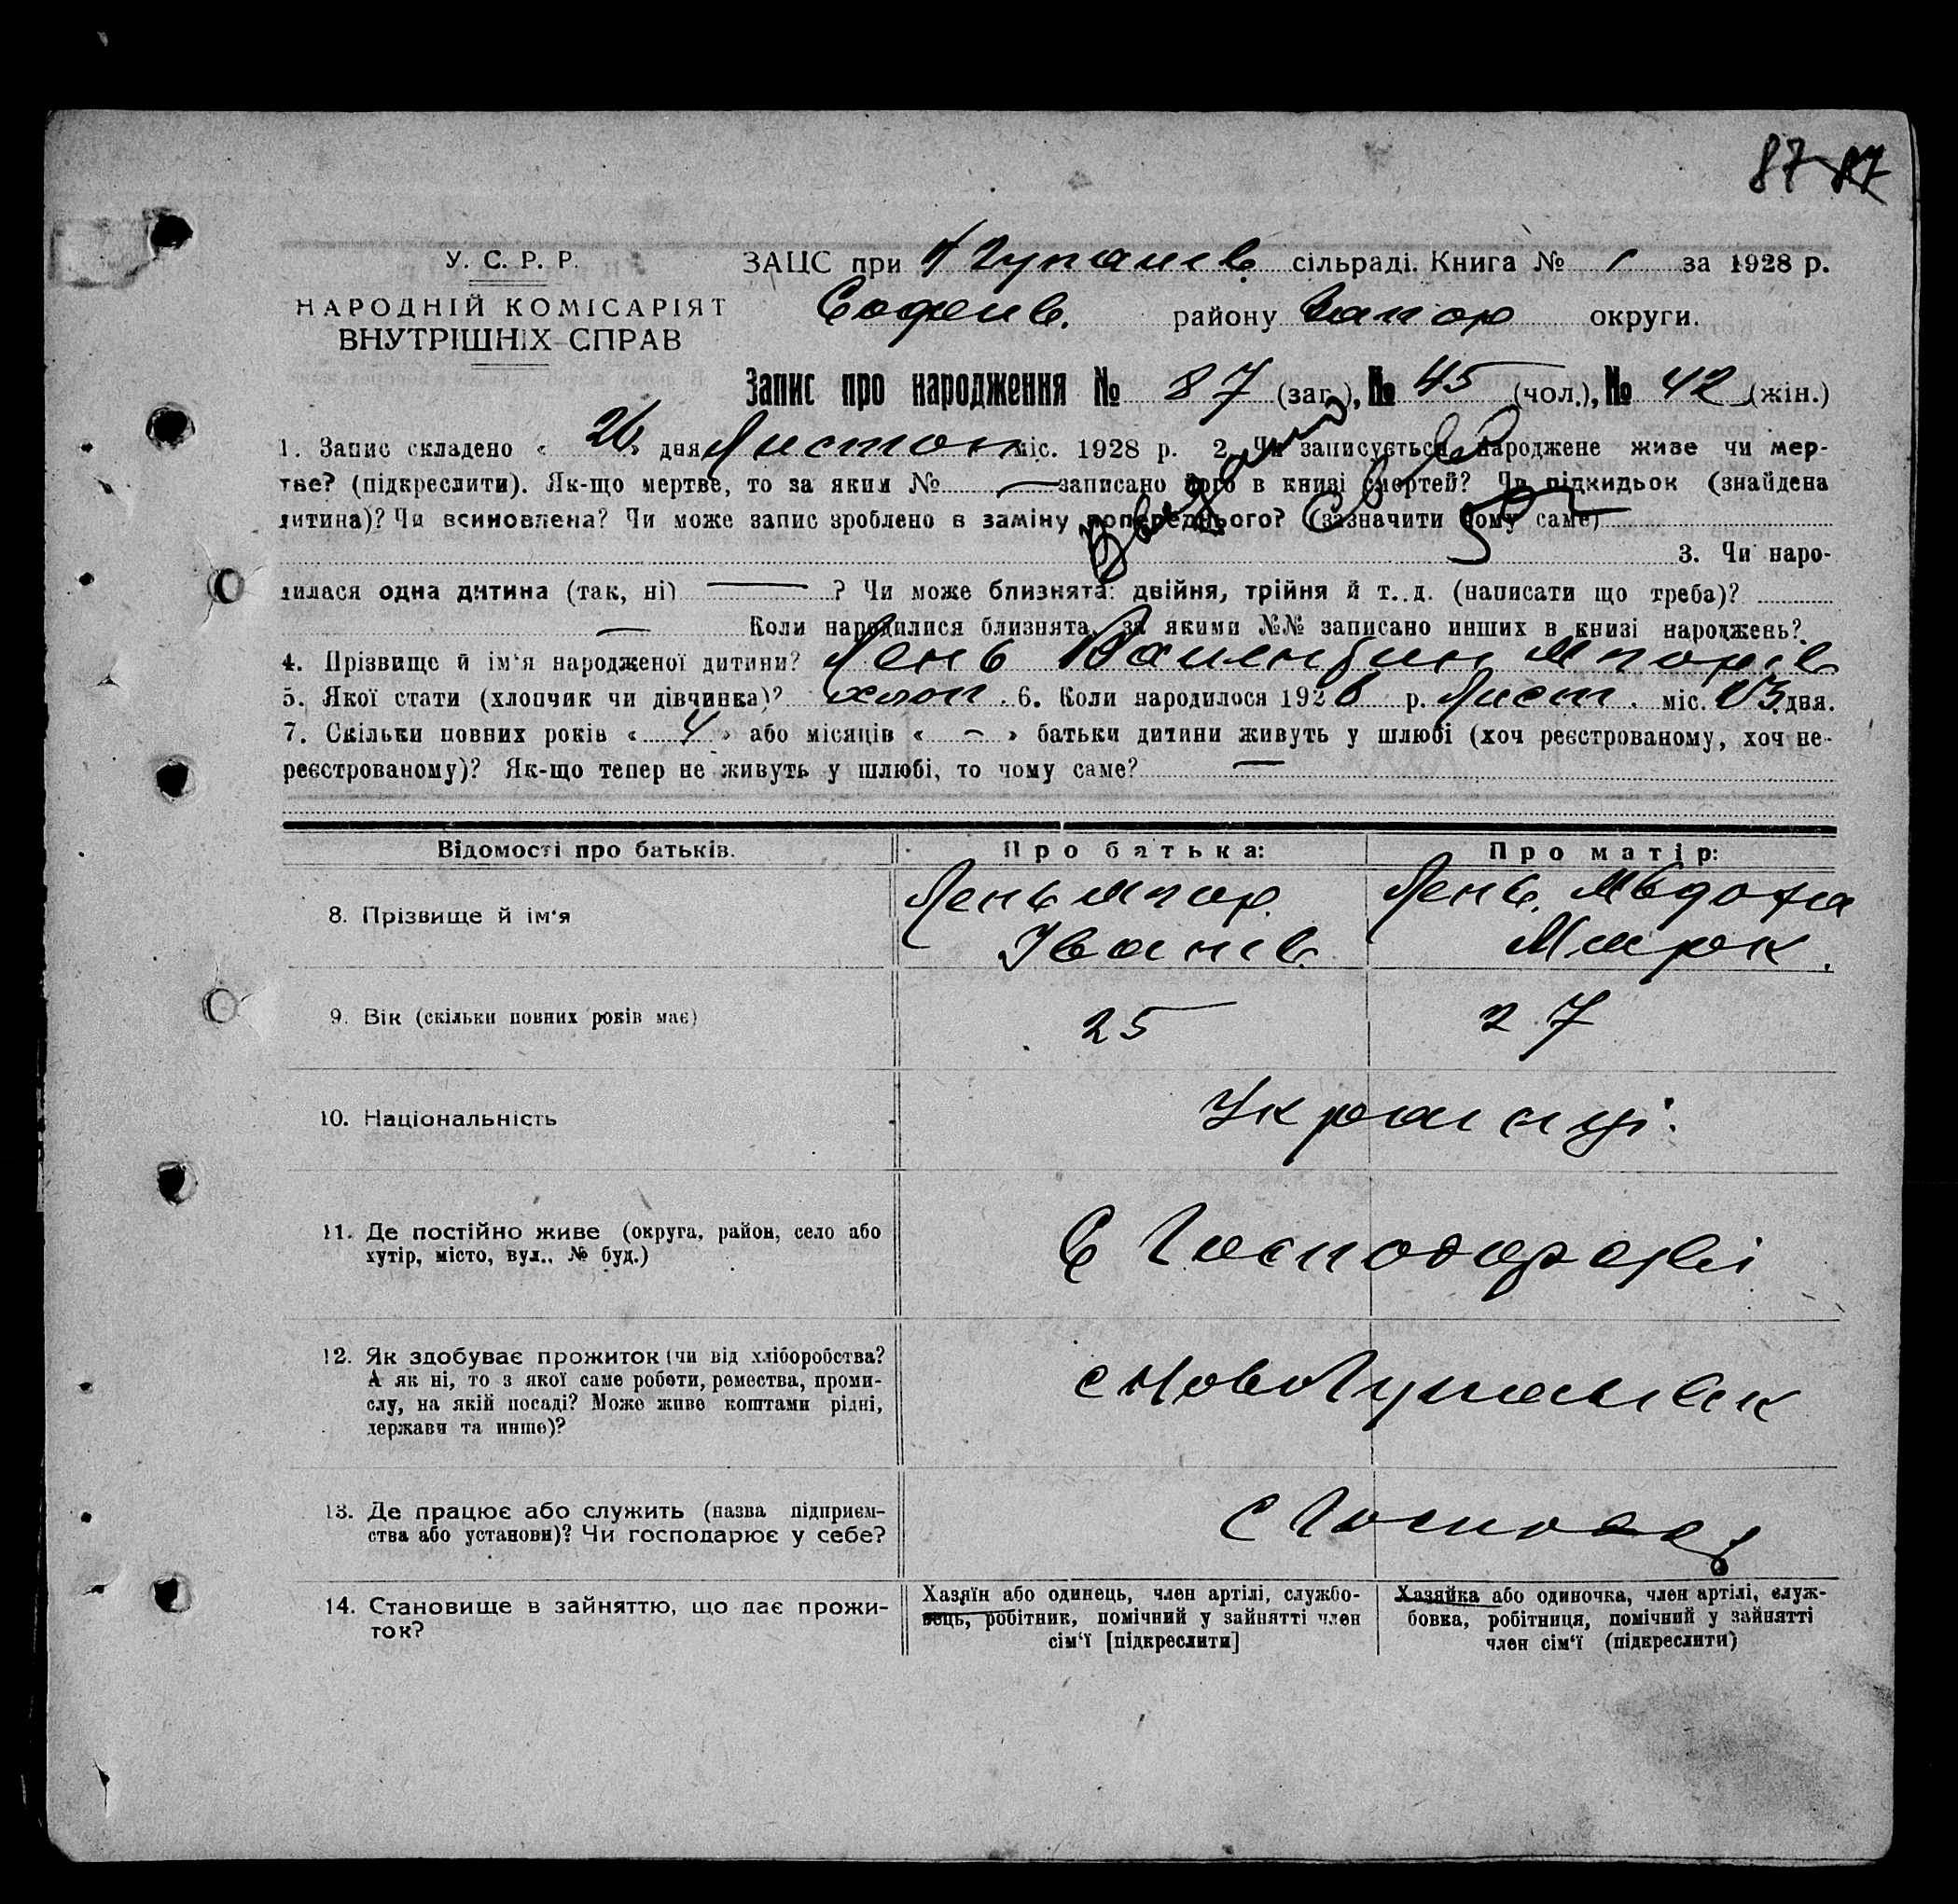 87 87
У. С. Р. Р.
НАРОДНІЙ КОМІСАРІЯТ
ВНУТРІШНІХ СПРАВ
ЗАЦС при сільраді. Книга № 1 за 1928 р.
Софіїв. району Запор округи.
Запис про народження № 87 (заг.), № 45 (чол.), № 42 (жін.)
1. Запис складено « 26 » дня Листоп міс. 1928 р. 2. Чи записується народжене живе чи мер-
тве? (підкреслити). Як-що мертве, то за яким № — записано його в книзі смертей? Чи підкидьок (знайдена
дитина)? Чи всиновлена? Чи може запис зроблено в заміну попереднього? (зазначити чому саме)
3. Чи наро-
дилася одна дитина (так, ні) — ? Чи може близнята: двійня, трійня й т. д. (написати що треба)?
— Коли народилися близнята, за якими №№ записано инших в книзі народжень?
4. Прізвище й ім'я народженої дитини? Лень Валентин
5. Якої стати (хлопчик чи дівчинка)? хлоп. 6. Коли народилося 1928 р. Лист. міс. 13 дня.
7. Скільки повних років « 4 » або місяців « — » батьки дитини живуть у шлюбі (хоч реєстрованому, хоч не-
реєстрованому)? Як-що тепер не живуть у шлюбі, то чому саме? —
Відомості про батьків. Про батька: Про матір:
8. Прізвище й ім'я
Лень Лень
Іванів Марк.
9. Вік (скільки повних років має) 25 27
10. Національність Українці.
11. Де постійно живе (округа, район, село або
хутір, місто, вул., № буд.)
12. Як здобуває прожиток (чи від хліборобства?
А як ні, то з якої саме роботи, ремества, проми-
слу, на якій посаді? Може живе коштами рідні,
держави та инше)?
13. Де працює або служить (назва підприєм-
ства або установи)? Чи господарює у себе?
14. Становище в зайняттю, що дає прожи-
ток?
Хазяїн або одинець, член артілі, службо-
вець, робітник, помічний у зайнятті член
сім'ї [підкреслити]
Хазяйка або одиночка, член артілі, служ-
бовка, робітниця, помічний у зайнятті
член сім'ї (підкреслити)